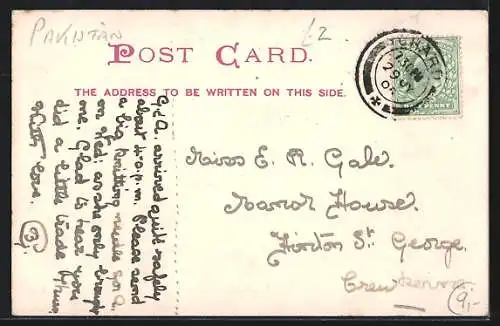 PAKISTAN
£2
POST CARD.
THE ADDRESS TO BE WRITTEN ON THIS SIDE.
CHARD
PENNY
G & A. arrived quite safely
about 4.0 p.m. Please send
a big knitting needle for A.
on Wed: as she only brought
one. Glad to hear you
did a little trade Thurs.
With love.
Miss E. R. Gale.
Manor House.
Hinton St. George.
Crewkerne
9,-